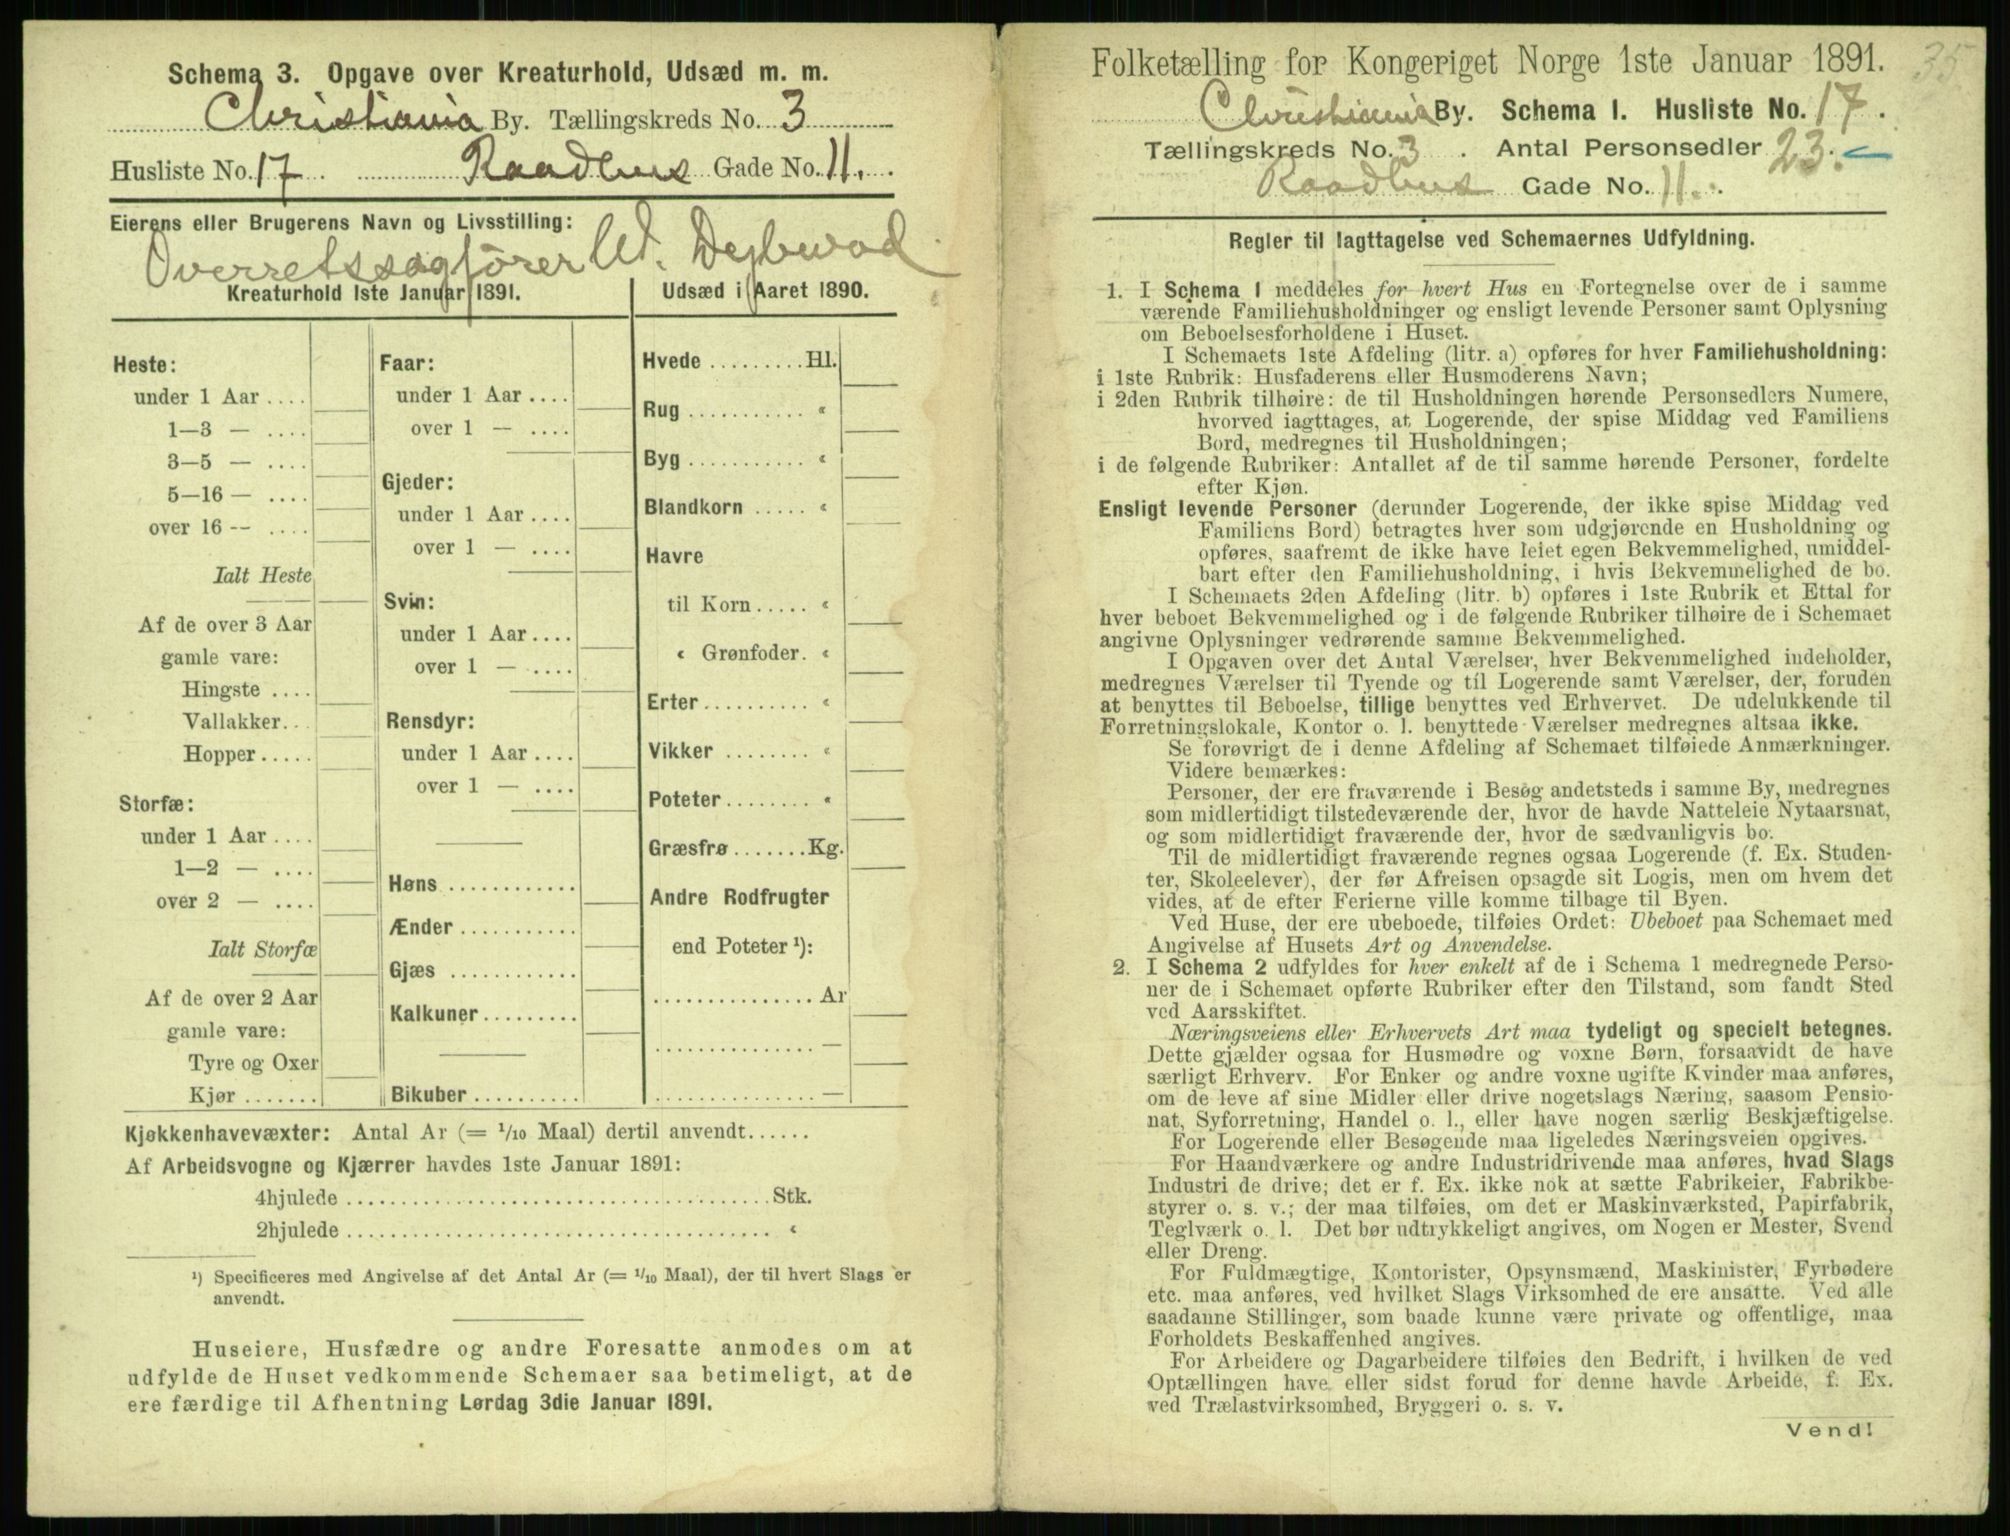 Schema 3. Opgave over Kreaturhold, Udsæd m. m.
Christiania By. Tællingskreds No. 3
Husliste No. 17 Raadhus Gade No. 11.
Eierens eller Brugerens Navn og Livsstilling:
Overretssagfører W. Dybwad
Kreaturhold 1ste Januar 1891.
Heste:
under 1 Aar ....
1—3 — ....
3—5 — ....
5—16 — ....
over 16 -- ....
Ialt Heste
Af de over 3 Aar
gamle vare:
Hingste ....
Vallakker...
Hopper.....
Storfæ:
under 1 Aar ....
1—2 — ....
over 2 — ....
Ialt Storfæ
Af de over 2 Aar
gamle vare:
Tyre og Oxer
Kjør .......
Faar:
under 1 Aar ....
over 1 — ....
Gjeder:
under 1 Aar ....
over 1 — ....
Svin:
under 1 Aar ....
over 1 — ....
Rensdyr:
under 1 Aar ....
over 1 — ....
Høns ............
Ænder ...........
Gjæs ............
Kalkuner.........
Bikuber ..........
Udsæd i Aaret 1890.
Hvede .........Hl.
Rug ........... «
Byg ........... «
Blandkorn ..... «
Havre
til Korn..... «
« Grønfoder. «
Erter.......... «
Vikker ........ «
Poteter ........ «
Græsfrø .......Kg.
Andre Rodfrugter
end Poteter ¹):
...............Ar
............... —
............... —
Kjøkkenhavevæxter: Antal Ar (= 1/10 Maal) dertil anvendt......
Af Arbeidsvogne og Kjærrer havdes 1ste Januar 1891:
4hjulede ........................................Stk.
2hjulede ........................................ «
¹) Specificeres med Angivelse af det Antal Ar (= 1/10 Maal), der til hvert Slags er
anvendt.
Huseiere, Husfædre og andre Foresatte anmodes om at
udfylde de Huset vedkommende Schemaer saa betimeligt, at de
ere færdige til Afhentning Lørdag 3die Januar 1891.
35
Folketælling for Kongeriget Norge 1ste Januar 1891.
Christiania By. Schema I. Husliste No. 17.
Tællingskreds No. 3. Antal Personsedler 23.
Raadhus Gade No. 11.
Regler til Iagttagelse ved Schemaernes Udfyldning.
1. I Schema 1 meddeles for hvert Hus en Fortegnelse over de i samme
værende Familiehusholdninger og ensligt levende Personer samt Oplysning
om Beboelsesforholdene i Huset.
I Schemaets 1ste Afdeling (litr. a) opføres for hver Familiehusholdning:
i 1ste Rubrik: Husfaderens eller Husmoderens Navn;
i 2den Rubrik tilhøire: de til Husholdningen hørende Personsedlers Numere,
hvorved iagttages, at Logerende, der spise Middag ved Familiens
Bord, medregnes til Husholdningen;
i de følgende Rubriker: Antallet af de til samme hørende Personer, fordelte
efter Kjøn.
Ensligt levende Personer (derunder Logerende, der ikke spise Middag ved
Familiens Bord) betragtes hver som udgjørende en Husholdning og
opføres, saafremt de ikke have leiet egen Bekvemmelighed, umiddel-
bart efter den Familiehusholdning, i hvis Bekvemmelighed de bo.
I Schemaets 2den Afdeling (litr. b) opføres i 1ste Rubrik et Ettal for
hver beboet Bekvemmelighed og i de følgende Rubriker tilhøire de i Schemaet
angivne Oplysninger vedrørende samme Bekvemmelighed.
I Opgaven over det Antal Værelser, hver Bekvemmelighed indeholder,
medregnes Værelser til Tyende og til Logerende samt Værelser, der, foruden
at benyttes til Beboelse, tillige benyttes ved Erhvervet. De udelukkende til
Forretningslokale, Kontor o. l. benyttede Værelser medregnes altsaa ikke.
Se forøvrigt de i denne Afdeling af Schemaet tilføiede Anmærkninger.
Videre bemærkes:
Personer, der ere fraværende i Besøg andetsteds i samme By, medregnes
som midlertidigt tilstedeværende der, hvor de havde Natteleie Nytaarsnat,
og som midlertidigt fraværende der, hvor de sædvanligvis bo.
Til de midlertidigt fraværende regnes ogsaa Logerende (f. Ex. Studen-
ter, Skoleelever), der før Afreisen opsagde sit Logis, men om hvem det
vides, at de efter Ferierne ville komme tilbage til Byen.
Ved Huse, der ere ubeboede, tilføies Ordet: Ubeboet paa Schemaet med
Angivelse af Husets Art og Anvendelse.
2. I Schema 2 udfyldes for hver enkelt af de i Schema 1 medregnede Perso-
ner de i Schemaet opførte Rubriker efter den Tilstand, som fandt Sted
ved Aarsskiftet.
Næringsveiens eller Erhvervets Art maa tydeligt og specielt betegnes.
Dette gjælder ogsaa for Husmødre og voxne Børn, forsaavidt de have
særligt Erhverv. For Enker og andre voxne ugifte Kvinder maa anføres,
om de leve af sine Midler eller drive nogetslags Næring, saasom Pensio-
nat, Syforretning, Handel o. l., eller have nogen særlig Beskjæftigelse.
For Logerende eller Besøgende maa ligeledes Næringsveien opgives.
For Haandværkere og andre Industridrivende maa anføres, hvad Slags
Industri de drive; det er f. Ex. ikke nok at sætte Fabrikeier, Fabrikbe-
styrer o. s. v.; der maa tilføies, om det er Maskinværksted, Papirfabrik,
Teglværk o. l. Det bør udtrykkeligt angives, om Nogen er Mester, Svend
eller Dreng.
For Fuldmægtige, Kontorister, Opsynsmænd, Maskinister, Fyrbødere
etc. maa anføres, ved hvilket Slags Virksomhed de ere ansatte. Ved alle
saadanne Stillinger, som baade kunne være private og offentlige, maa
Forholdets Beskaffenhed angives.
For Arbeidere og Dagarbeidere tilføies den Bedrift, i hvilken de ved
Optællingen have eller sidst forud for denne havde Arbeide, f. Ex.
ved Trælastvirksomhed, Bryggeri o. s. v.
Vend!